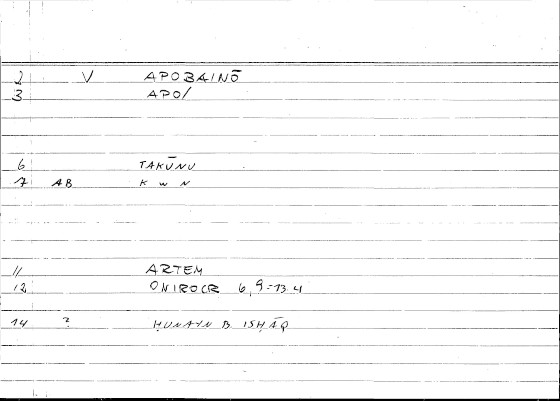 2 V APOBAINŌ
3 APO/
6 TAKŪNU
7 AB K w N
11 ARTEM
12 ONIROCR 6,9=13.4
14 ? ḤUNAYN B. ISḤĀQ